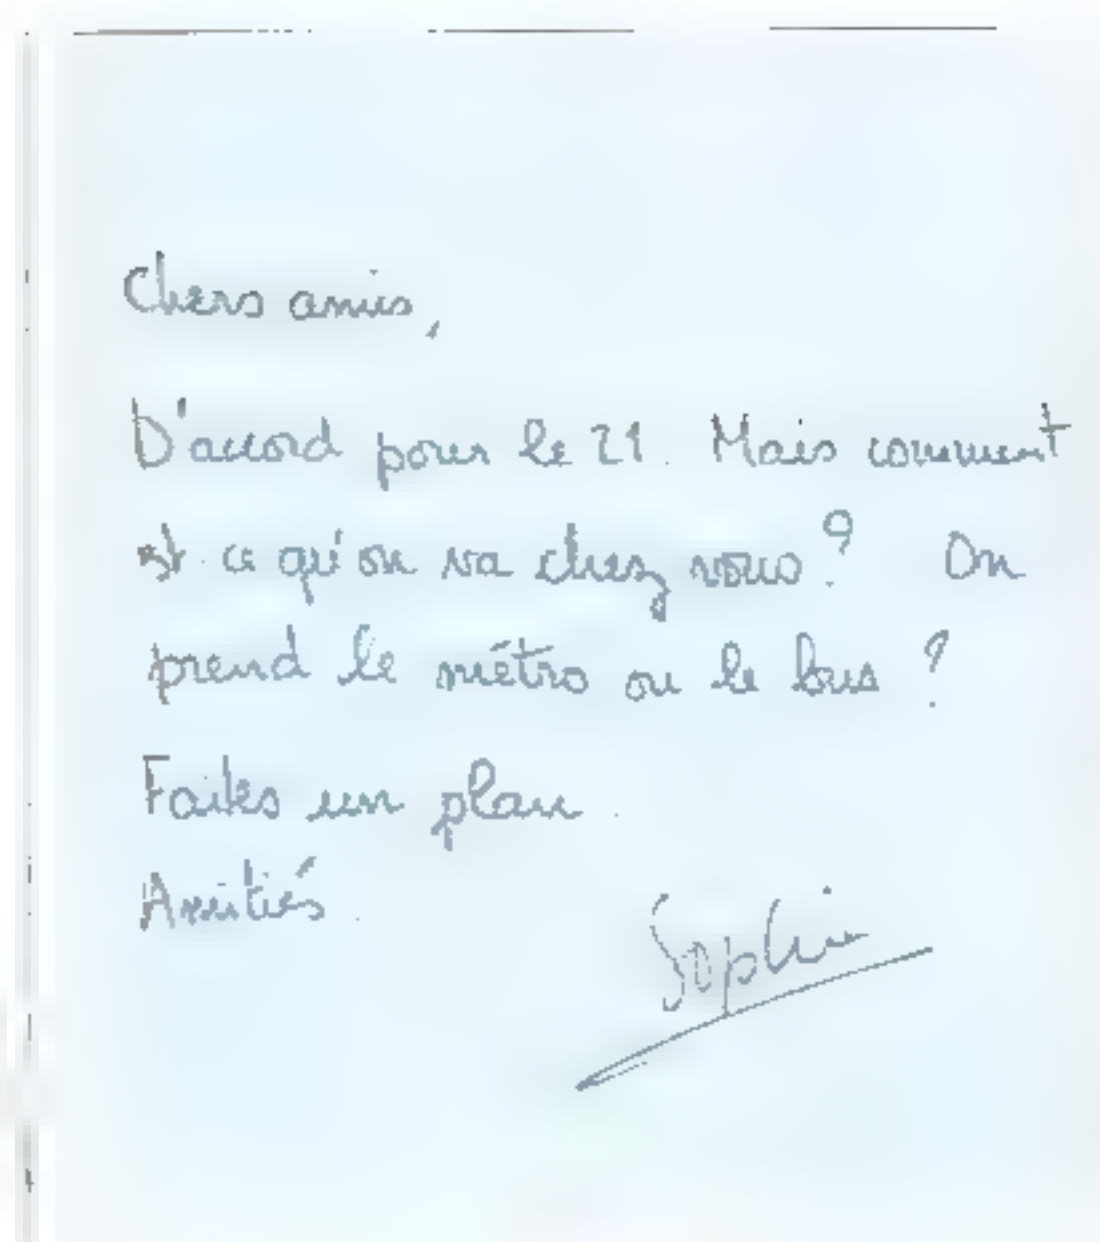 Chers amis,
D'accord pour le 21. Mais comment
est ce qu'on va chez vous ? On
prend le métro ou le bus ?
Faites un plan.
Amitiés.
Sophie